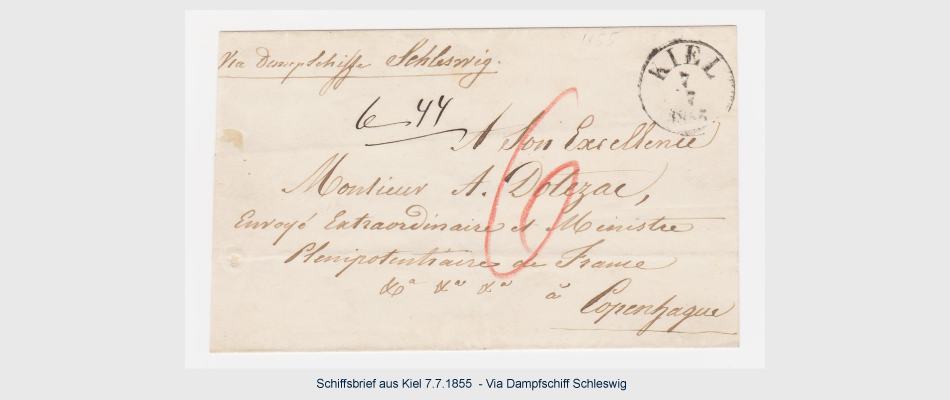 1855
Via Dampschiffe Schleswig.
KIEL
7
7
1855
6 44
A Son Excellence
6
Monsieur A. Dotezac,
Envoyé Extraordinaire et Ministre
Plenipotentiaire de France
&a &a &a à
Copenhague
Schiffsbrief aus Kiel 7.7.1855 - Via Dampfschiff Schleswig